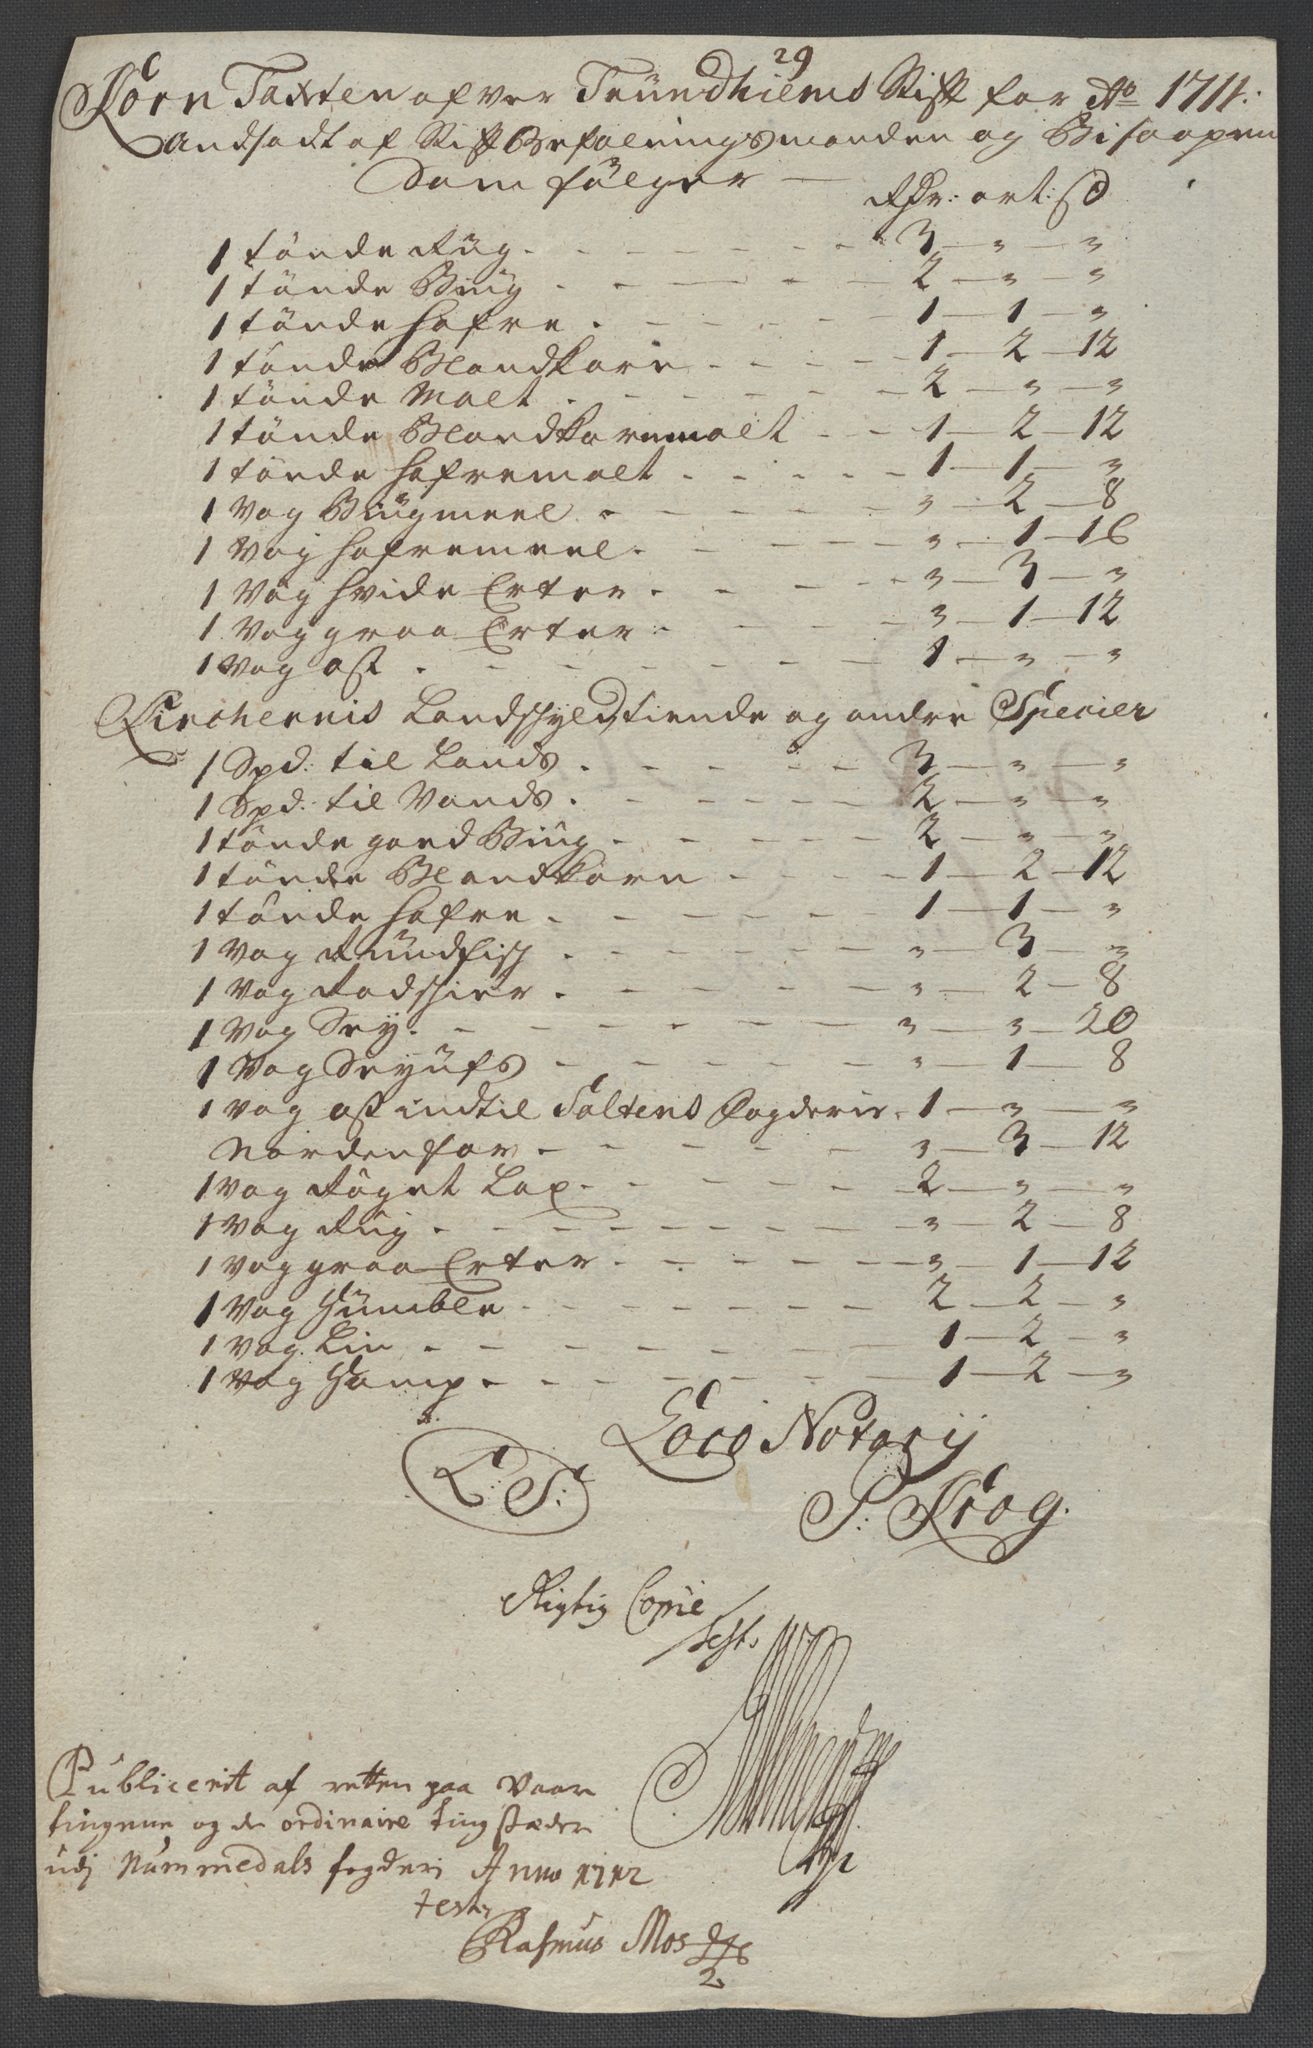 29
Korn Taxten ofver Trundhiems Stift for Ao 1711:
Andsadt af Stift Befalningsmanden og Biscopen
Som følger
Rdr: ort: s
1 tønde Rüg 3 " "
1 tønde Biug 2 " "
1 tønde hafre 1 1 "
1 tønde Blandkorn 1 2 12
1 tønde Malt 2 " "
1 tønde Blandkornmalt 1 2 12
1 tønde hafremalt 1 1 "
1 Vog Biugmeel " 2 8
1 Vog hafremeel " 1 16
1 Vog hvide Erter " 3 "
1 Vog graa Erter " 1 12
1 Vog ost 1 " "
Kirchernis Landschyld, tiende og andre Specier
1 Spd: til Lands 3 " "
1 Spd: til Vands 2 " "
1 tønde goed Biug 2 " "
1 tønde Blandkorn 1 2 12
1 tønde hafre 1 1 "
1 Vog Rundfisch " 3 "
1 Vog Rodschier " 2 8
1 Vog Sey " " 20
1 Vog Seyufs " 1 8
1 Vog ost indtil Saltens fogderie 1 " "
Nordenfor " 3 12
1 Vog Røget Lax 2 " "
1 Vog Rug " 2 8
1 Vog graa Erter " 1 12
1 Vog Humble 2 2 "
1 Vog Lin 1 2 "
1 Vog Hamp 1 2 "
Loco Notarij
L: S:
P: Krog.
Rigtig Copie
test.
Publicerit af retten paa Vaar
tingene og de ordinaire tingstæder
udj Nummedals fogderi Anno 1712
test
Rasmus Mos